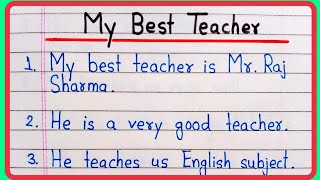 My Best Teacher
1. My best teacher is Mr. Raj
Sharma.
2. He is a very good teacher.
3. He teaches us English subject.